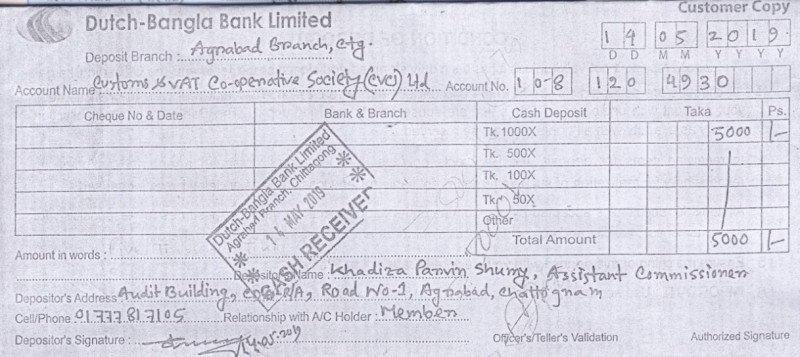 Customer Copy
Dutch-Bangla Bank Limited
Deposit Branch : Agrabad Branch, Ctg.
14 05 2019
D D M M Y Y Y Y
Account Name Customs & VAT Co-operative Society (cvc) Ltd Account No. 108 120 4930
Cheque No & Date Bank & Branch Cash Deposit Taka Ps.
Tk. 1000X 5000 /-
Tk. 500X
Tk. 100X
Tk. 50X
Other
Total Amount 5000 /-
Dutch-Bangla Bank Limited
Agrabad Branch, Chittagong
14 MAY 2019
CASH RECEIVED
Amount in words :
Depositor's Name : Khadiza Parvin Shumy, Assistant Commissioner
Depositor's Address Audit Building, R/A, Road No-1, Agrabad, Chattogram
Cell/Phone 01777817105 Relationship with A/C Holder : Member
Depositor's Signature : 14.05.2019 Officer's/Teller's Validation Authorized Signature